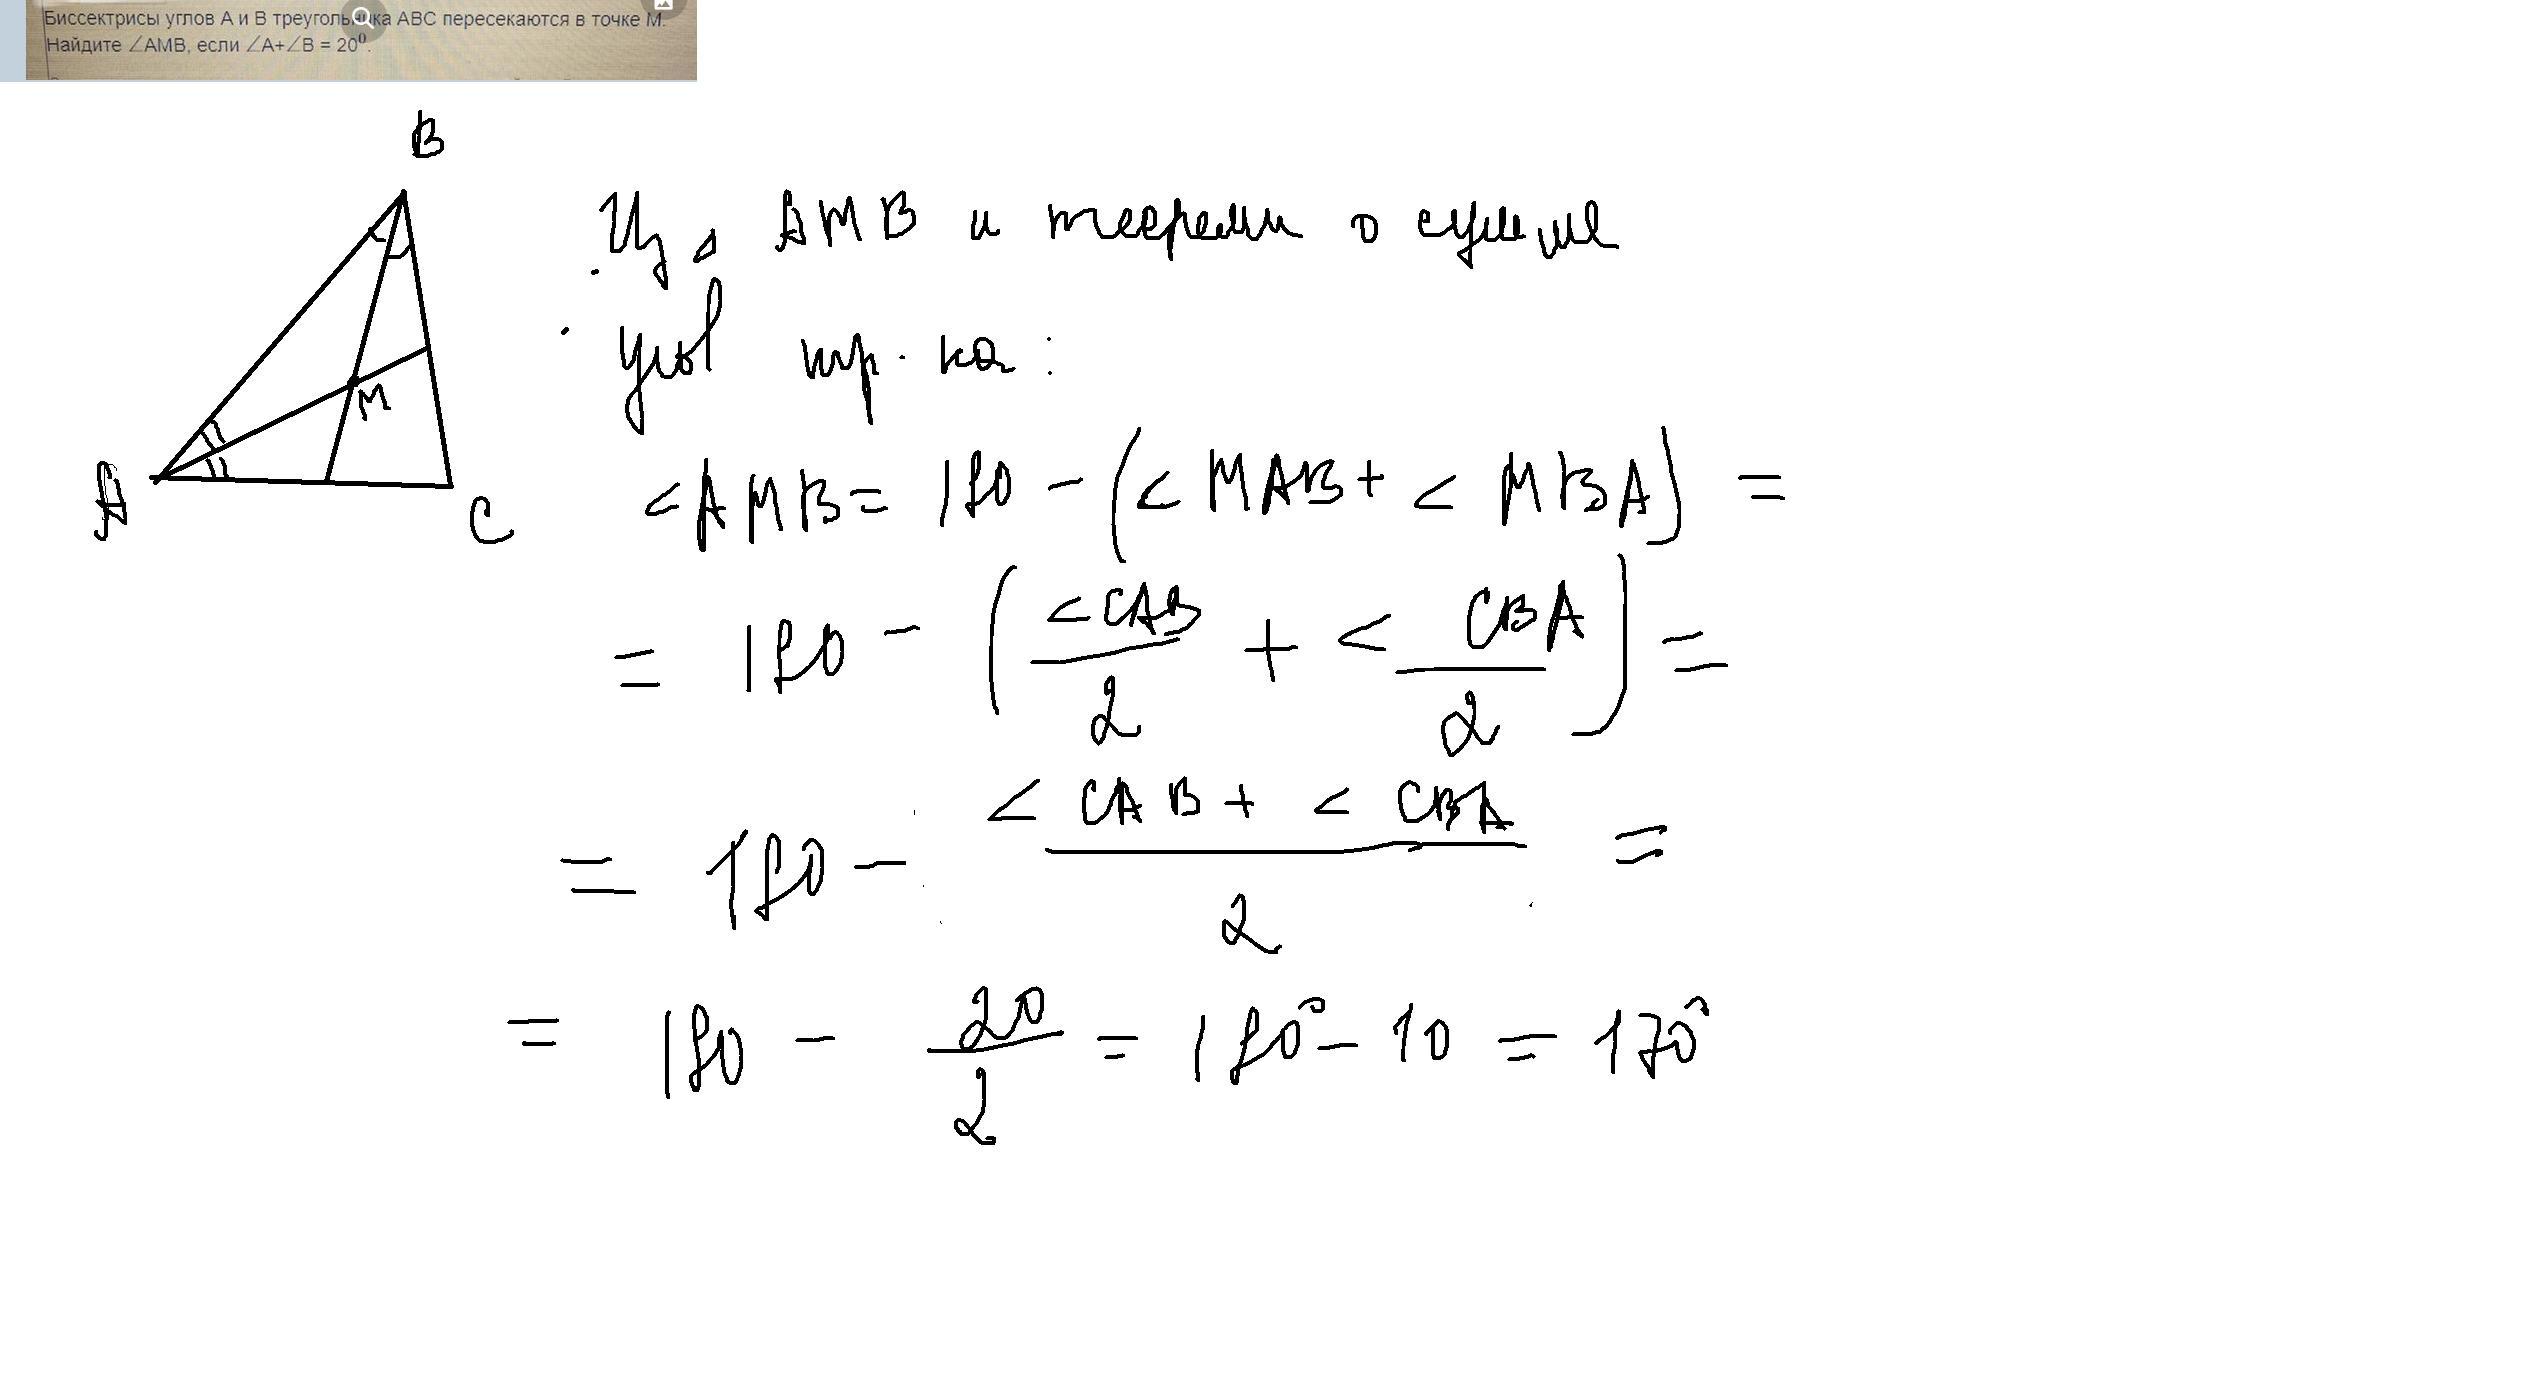 Биссектрисы углов А и В треугольника АВС пересекаются в точке М.
Найдите ∠АМВ, если ∠А+∠В = 20⁰.
B
M
A
C
Из △ AMB и теоремы о сумме
углов тр-ка:
<AMB = 180 - (< MAB + < MBA) =
= 180 - (<CAB/2 + < CBA/2) =
= 180 - < CAB + < CBA/2 =
= 180 - 20/2 = 180° - 10 = 170°